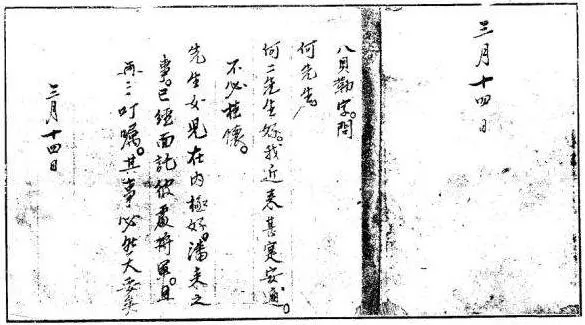 三月十四日
八貝勒字。問
何先生。
何二先生好。我近来甚寔安適。
不必掛懷。
先生女兒在内極好。潘来之
事。已經面託彼處將軍。且
再三叮嘱。其事必然大妥矣
三月十四日